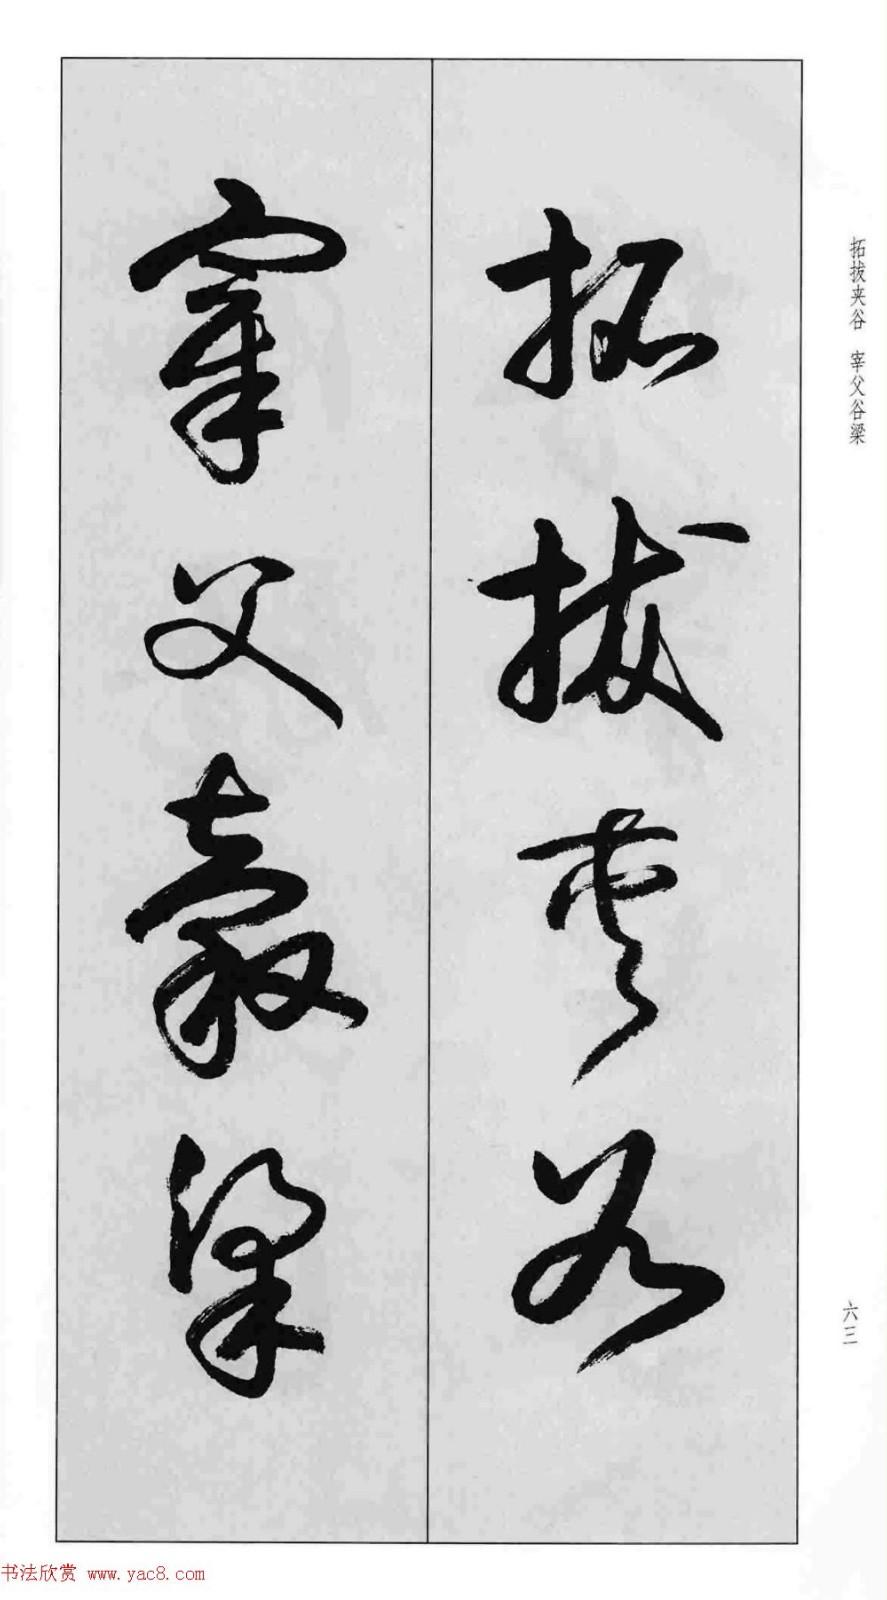 拓拔夹谷 宰父谷梁
拓拔夹谷
宰父穀梁
六三
书法欣赏 www.yac8.com